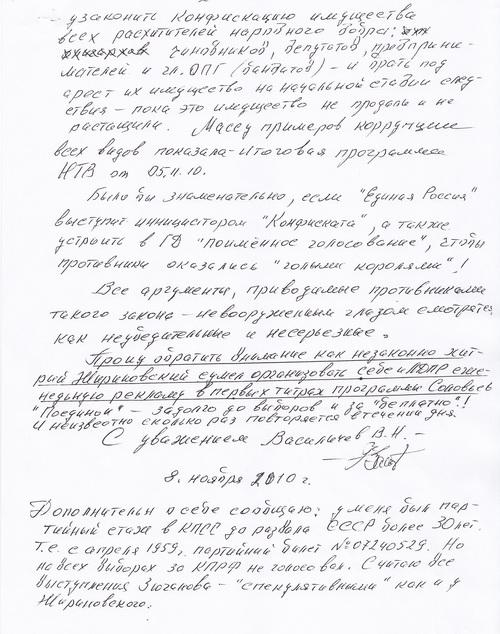 узаконить конфискацию имущества
всех расхитителей народного добра:
чиновников, депутатов, предприни-
мателей и гл. ОПГ (бандитов) – и брать под
арест их имущество на начальной стадии след-
ствия – пока это имущество не продали и не
растащили. Массу примеров коррупции
всех видов показала – итоговая программа
НТВ от 05.11.10.
Было бы знаменательно, если "Единая Россия"
выступит инициатором "Конфиската", а также
устроить в ГД "поимённое голосование", чтобы
противники оказались "голыми королями"!
Все аргументы, приводимые противниками
такого закона – невооруженным глазом смотрятся
как неубедительные и несерьезные.
Прошу обратить внимание как незаконно хит-
рый Жириновский сумел организовать себе и ЛДПР еже-
недельную рекламу в первых титрах программы Соловьева
"Поединок" – задолго до выборов и за "бесплатно"!
И неизвестно сколько раз повторяется в течении дня.
С уважением Васильичев В.Н. –
8. ноября 2010 г.
Дополнительно о себе сообщаю: у меня был пар-
тийный стаж в КПСС до развала СССР более 30 лет.
Т.е. с апреля 1959, партийный билет № 07240529. Но
на всех выборах за КПРФ не голосовал. Считаю все
выступления Зюганова – "спекулятивными" как и у
Жириновского.